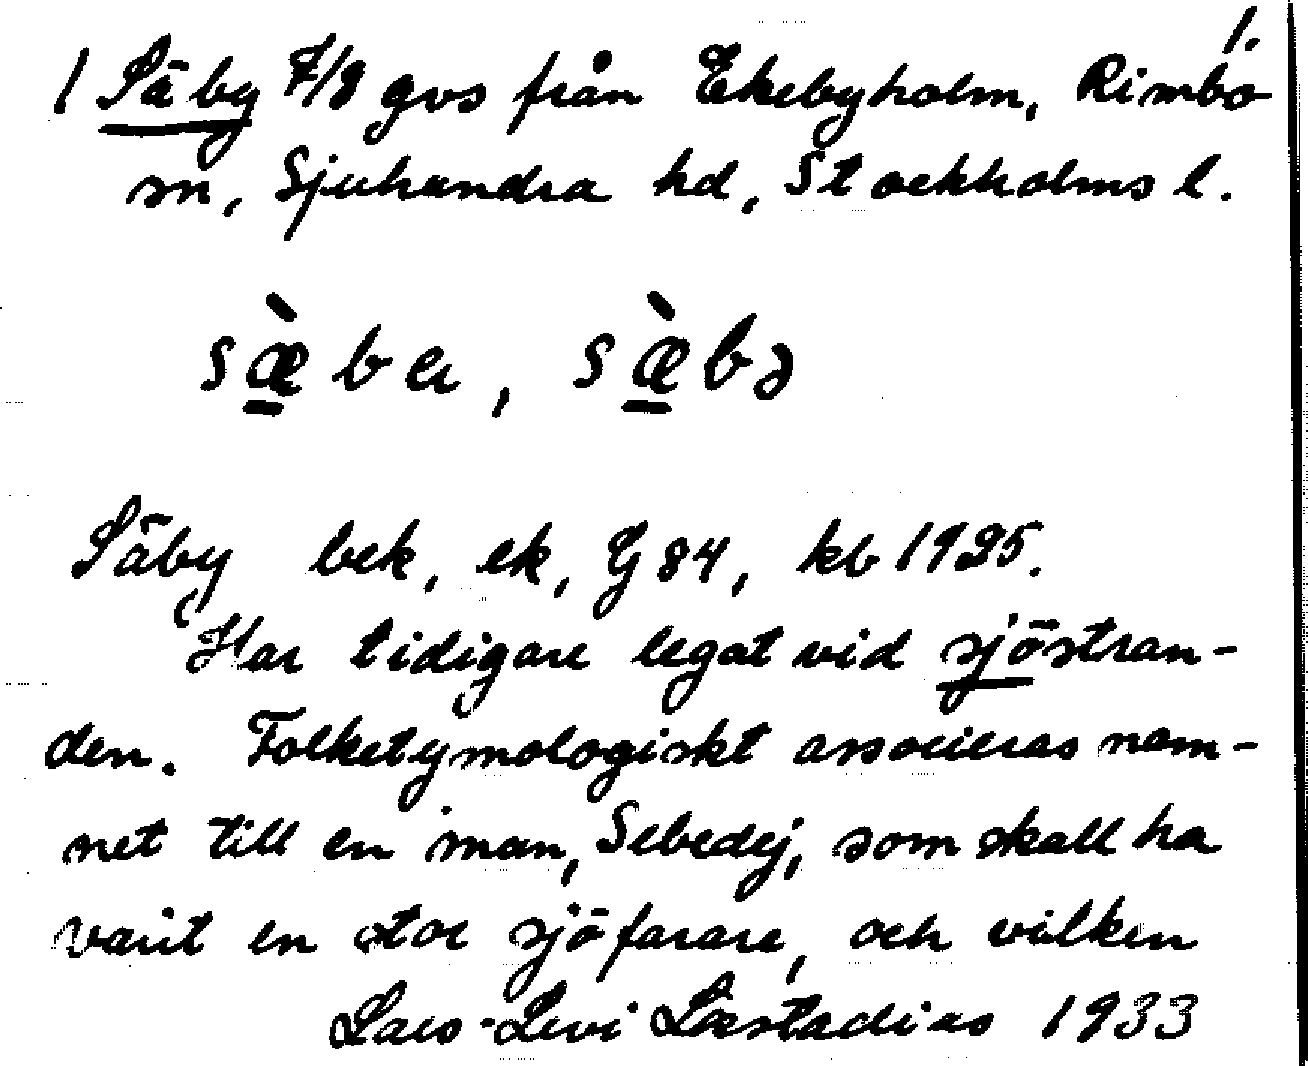 1.
1 Säby 7/8 gvs från Ekebyholm, Rimbo
sn, Sjuhundra hd, Stockholms l.
sæ̀ba, sæ̀bə
Säby bek, ek, G 84, kb 1925.
Har tidigare legat vid sjöstran-
den. Folketymologiskt associeras nam-
net till en man, Sebedej, som skall ha
varit en stor sjöfarare, och vilken
Lars-Levi Læstadius 1933